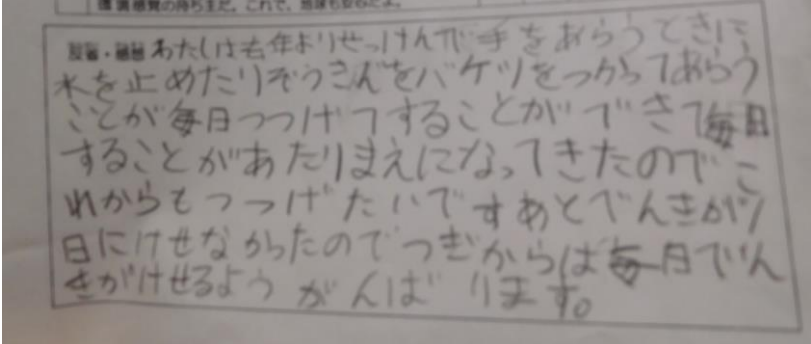 環境感覚の持ち主だ。これで、地球も安心だよ。
わたしは去年よりせっけんで手をあらうときに
水を止めたりぞうきんをバケツをつかってあらう
ことが毎日つつげてすることができて毎日
することがあたりまえになってきたのでこ
れからもつつげたいですあとでんきが1
日にけせなかったのでつぎからは毎日でん
きがけせるようがんばります。